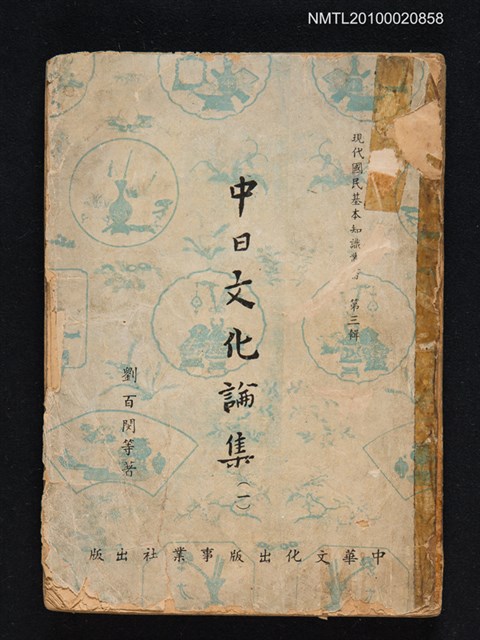 NMTL20100020858
現代國民基本知識叢書 第三輯
中日文化論集(一)
劉百閔等著
中華文化出版事業社出版